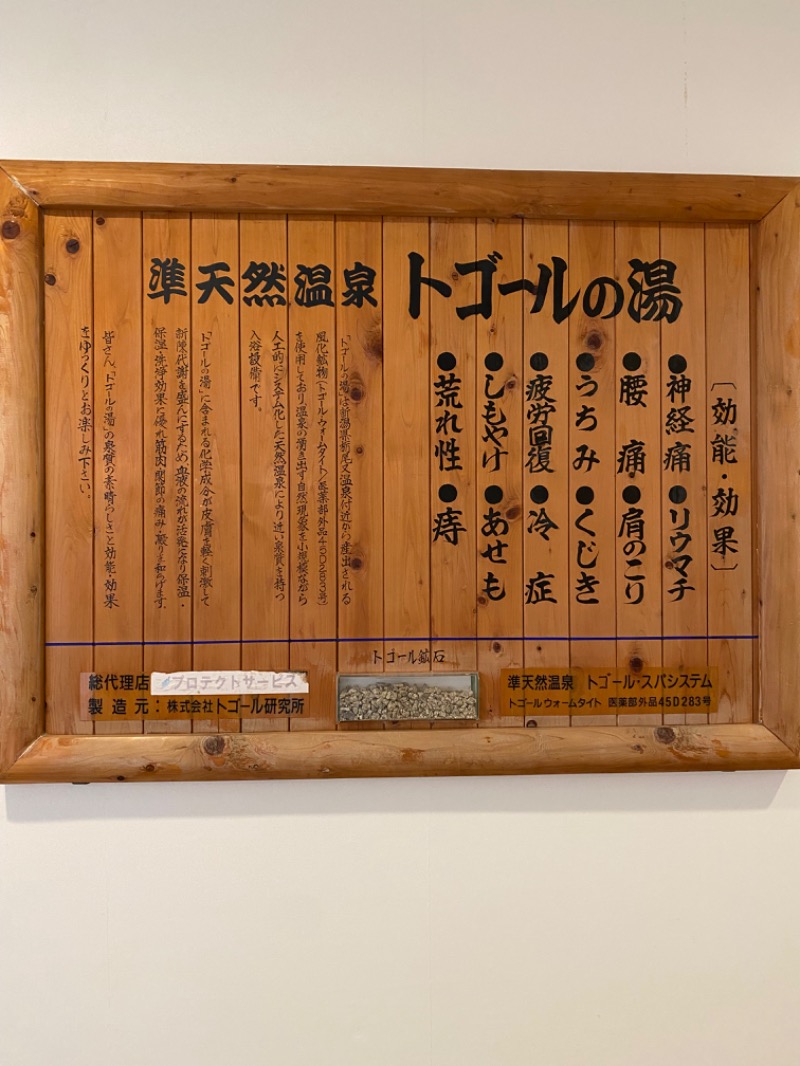 準天然温泉 トゴールの湯
〔効能・効果〕
●神経痛●リウマチ
●腰痛●肩のこり
●うちみ●くじき
●疲労回復●冷症
●しもやけ●あせも
●荒れ性●痔
「トゴールの湯」は新潟県栃尾又温泉付近から産出される
風化鉱物(トゴール・ウォームタイト/医薬部外品45D283号)
を使用しており、温泉の湧き出す自然現象を小規模ながら
人工的にシステム化した天然温泉により近い泉質を持つ
入浴設備です。
「トゴールの湯」に含まれる化学成分が皮膚を軽く刺激して
新陳代謝を盛んにするため、血液の流れが活発になり保温・
保湿・洗浄効果に優れ筋肉、関節の痛み・凝りを和らげます。
皆さん、「トゴールの湯」の泉質の素晴らしさと効能・効果
をゆっくりとお楽しみ下さい。
トゴール鉱石
総代理店 プロテクトサービス
製造元:株式会社トゴール研究所
準天然温泉 トゴール・スパシステム
トゴールウォームタイト 医薬部外品45D283号